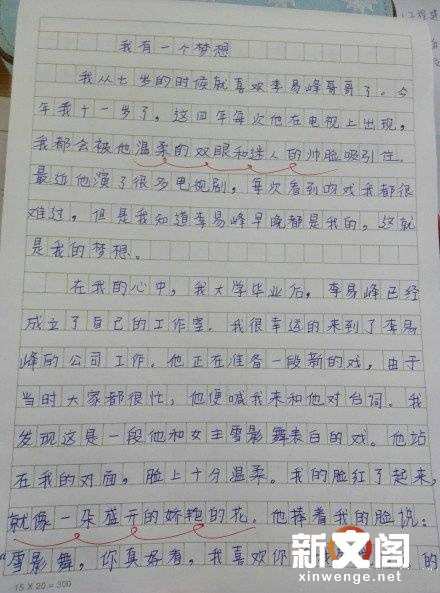 我有一个梦想
我从七岁的时候就喜欢李易峰哥哥了。今
年我十一岁了，这四年每次他在电视上出现，
我都会被他温柔的双眼和迷人的帅脸吸引住。
最近他演了很多电视剧，每次看到吻戏我都很
难过，但是我知道李易峰早晚都是我的，这就
是我的梦想。
在我的心中，我大学毕业后，李易峰已经
成立了自己的工作室，我很幸运的来到了李易
峰的公司工作。他正在准备一段新的戏，由于
当时大家都很忙，他便喊我来和他对台词。我
发现这是一段他和女主雪影舞表白的戏。他站
在我的对面，脸上十分温柔。我的脸红了起来，
就像一朵盛开的娇艳的花。他捧着我的脸说：
“雪影舞，你真好看，我喜欢你 的
15×20=300
新文阁
xinwenge.net